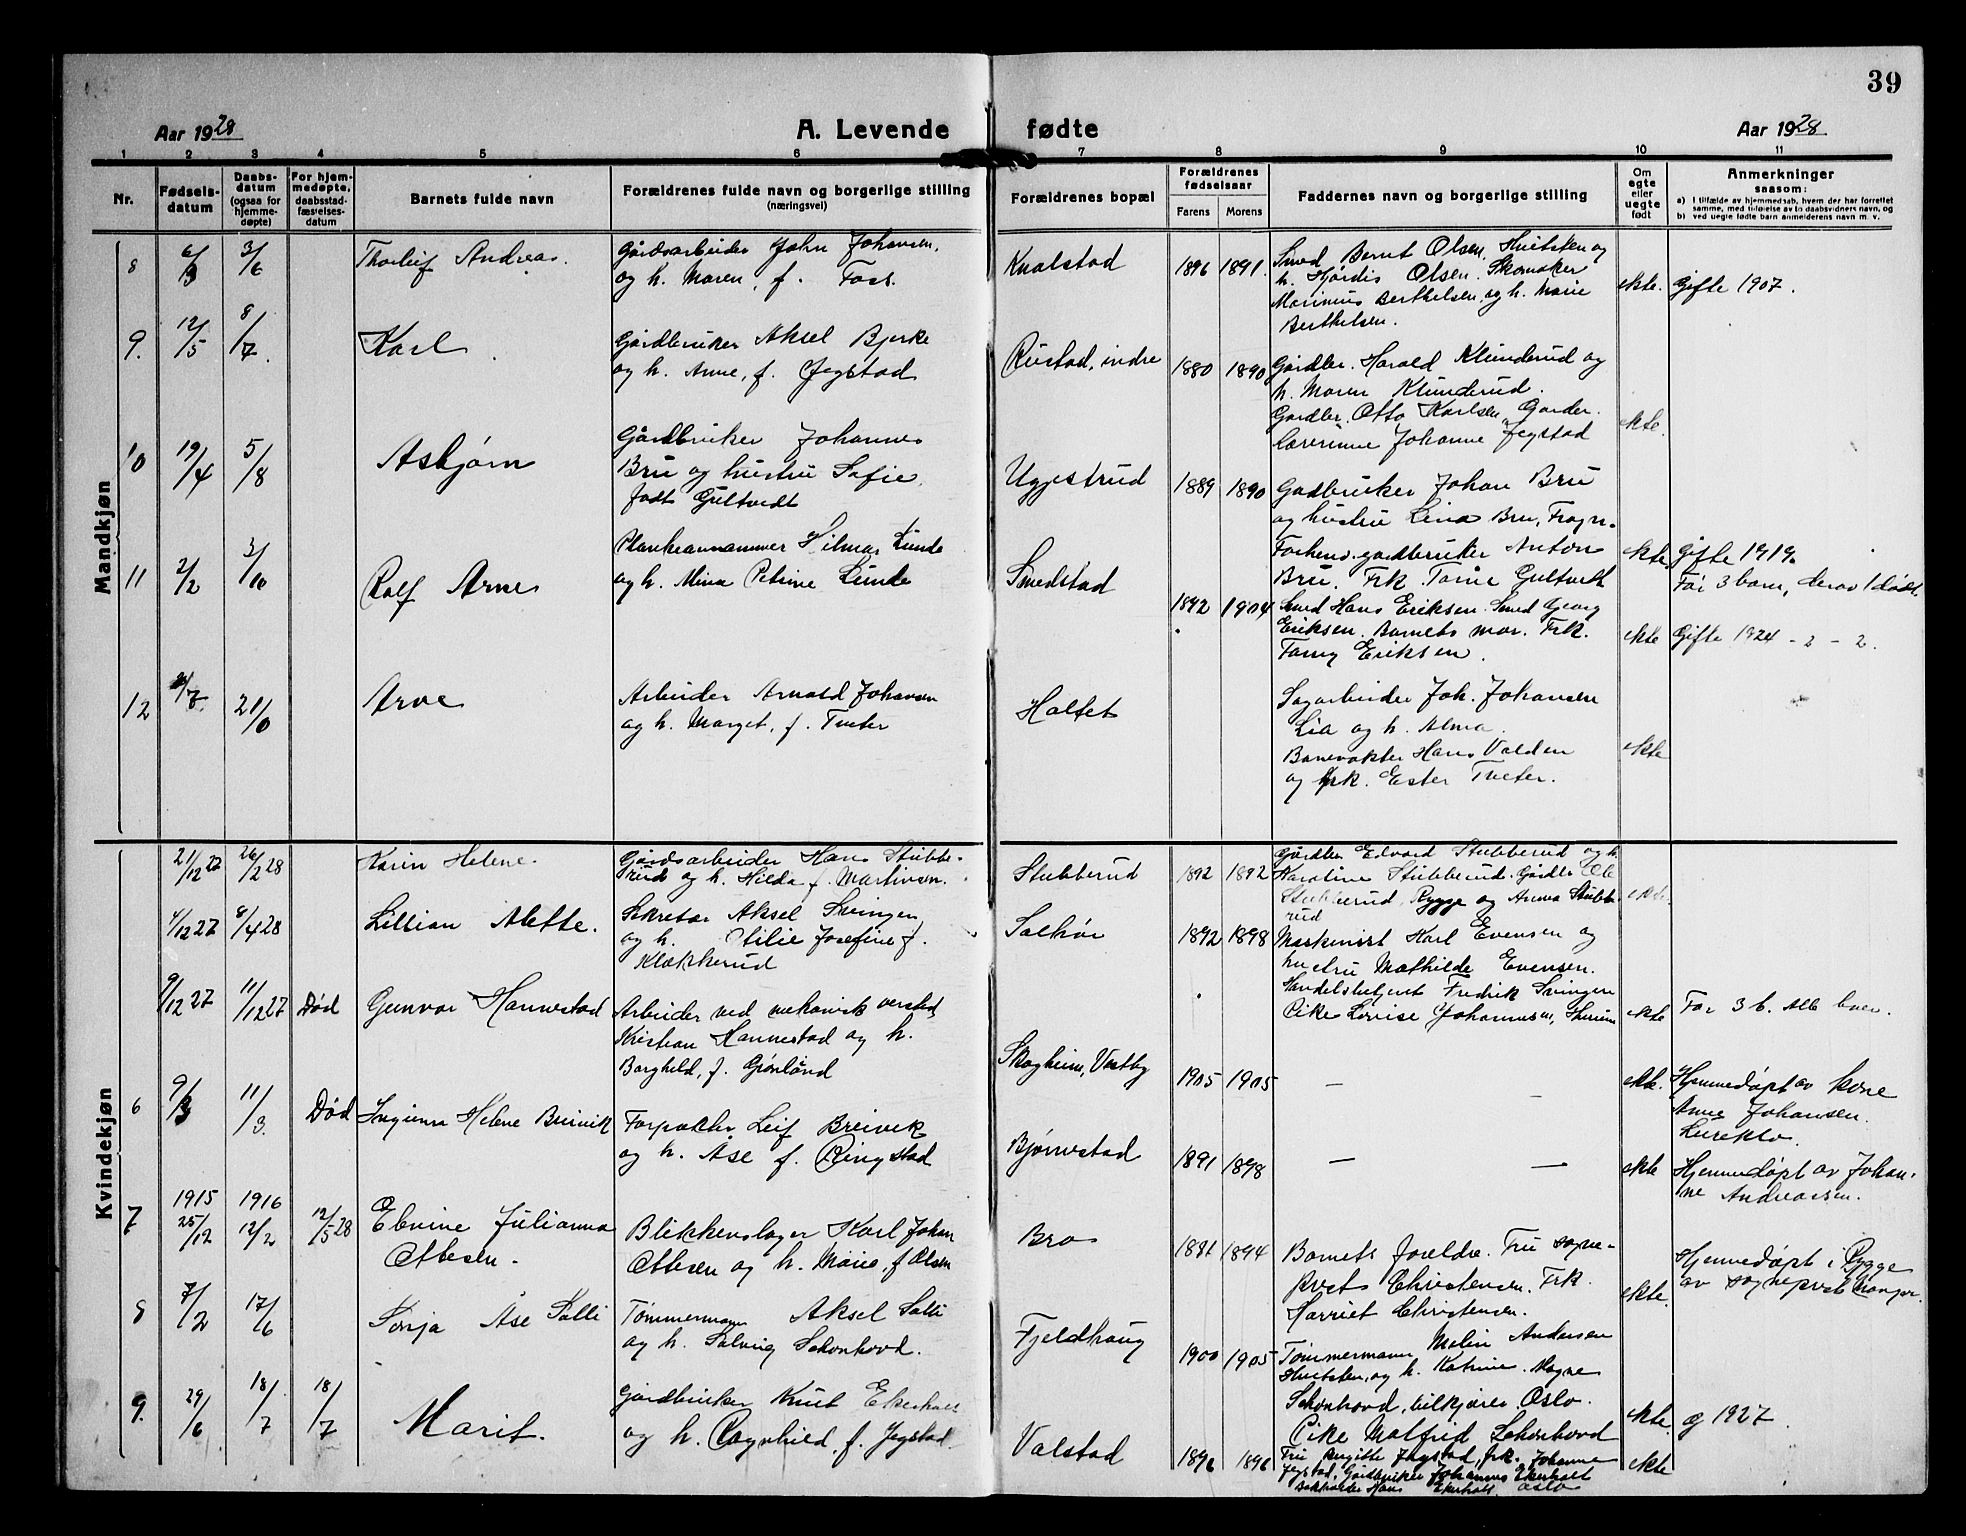 39
Aar 1928
A. Levende fødte
Aar 1928
1 2 3 4 5 6 7 8 9 10 11
Nr.
Fødsels-
datum
Daabs-
datum
(ogsaa for
hjemme-
døpte)
For hjem-
medøpte,
daabsstad-
fæstelses-
datum
Barnets fulde navn
Forældrenes fulde navn og borgerlige stilling
(næringsvei)
Forældrenes bopæl
Forældrenes
fødselsaar
Farens Morens
Faddernes navn og borgerlige stilling
Om
egte
eller
uegte
født
Anmerkninger
saasom:
a) I tilfælde av hjemmedaab, hvem der har forrettet
samme, med tilføielse av to daabsvidners navn, og
b) ved uegte fødte barn anmelderens navn m. v.
Mandkjøn
8 6/3 3/6 Thorleif Andreas.
Gårdsarbeider John Johansen,
og h. Maren, f. Foss.
Knalstad 1896 1891.
Smed Bernt Olsen, Hvitsten og
h. Hjørdis Olsen. Skomaker
Marinius Berthelsen og h. Marie
Berthelsen.
ekte. Gifte 1907.
9. 12/5 8/7. Karl
Gårdbruker Aksel Bjerke
og h. Anne, f. Jegstad
Rustad, indre 1880 1890
Gårdbr. Harald Klunderud og
h. Maren Klunderud.
Gardbr. Otto Karlsen, Garder.
Lærerinne Johanne Jegstad
ekte.
10 19/4 5/8 Asbjørn
Gårdbruker Johannes
Bru og hustru Sofie,
født Gultvedt
Uggestrud 1889 1890
Gadbruker Johan Bru
og hustru Lina Bru, Frogn.
Forhenv. gardbruker Anton
Bru. Frk. Gultvedt
ekte. Gifte 1919.
Før 3 barn, derav 1 dødt.
11 2/2 3/10 Rolf Arne
Hilmar Lunde
og h. Mina Petrine Lunde
Smedstad 1892 1904
Smed Hans Eriksen. Smed Georg
Eriksen. Barnets mor. Frk.
Fanny Eriksen.
ekte Gifte 1924 - 2 - 2.
12 /7. 21/0 Arve
Arbeider Arnold Johansen
og h. Marget, f. Tveter
Haltet
Sagarbeider Joh. Johansen
Lia og h. Alma.
Banevakter Hans Valden
og frk. Ester Tveter.
ekte
Kvindekjøn
21/12 27 26/2 28 Karin Helene.
Gårdsarbeider Hans Stubbe-
rud og h. Hilda f. Martinsen.
Stubberud 1892 1892
Gårdbr. Edvard Stubberud og h.
Karoline Stubberud. Gårdbr. Ole
Stubberud, Rygge og Anna Stubbe-
rud
4/12 27 8/4 28 Lillian Alette.
Sekretær Aksel Svingen,
og h. Otilie Josefine f.
Klækkerud
Solhør 1892 1898
Maskinist Karl Evensen og
hustru Mathilde Evensen.
Handelsbetjent Fredrik Svingen
Pike Lovise Johannesen,
ekte Før 3 b. Alle lever.
9/12 27 11/12 27 Død Gunvor Hannestad
Arbeider ved mekanisk versted
Kristian Hannestad og h.
Borghild, f. Grønlånd
Skogheim, Vestby 1905 1905 —
ekte. Hjemmedøpt av kone
Anne Johansen.
6 9/3 11/3. Død Ingunn Helene Breivik
Forpakter Leif Breivik
og h. Åse f. Ringstad
Bjørnestad 1891 1898 — —
ekte Hjemmedøpt av Johan-
ne Andreassen.
7 1915 25/12 1916 12/2 12/5 28
Elvine Julianna
Ottesen.
Blikkenslager Karl Johan
Ottesen og h. Marie, f. Olsen
Bro 1891 1894
Barnets foreldre. Fru sogne-
prest Christensen. Frk.
Harriet Christensen.
ekte.
Hjemmedøpt i Rygge
av sogneprest
8 7/2 17/6 Sonja Åse Solli
Tømmermann Aksel Solli
og h. Solveig Schonhovd.
Fjeldhaug 1900 1905
Tømmermann Malin Andersen
Hvitsten, og h. Katrine. Magne
Schonhovd, bilkjører, Oslo.
Pike Malfrid Schonhovd
ekte. g 1927.
9. 29/6 18/7 18/7 Marit.
Gårdbruker Knut Ekerholt
og h. Ragnhild, f. Jegstad.
Valstad 1896 1896
Fru Birgitte Jegstad, frk. Johanne
Jegstad, Gårdbruker Johannes Ekerholt
Bokholder Hans Ekerholt, Oslo
ekte